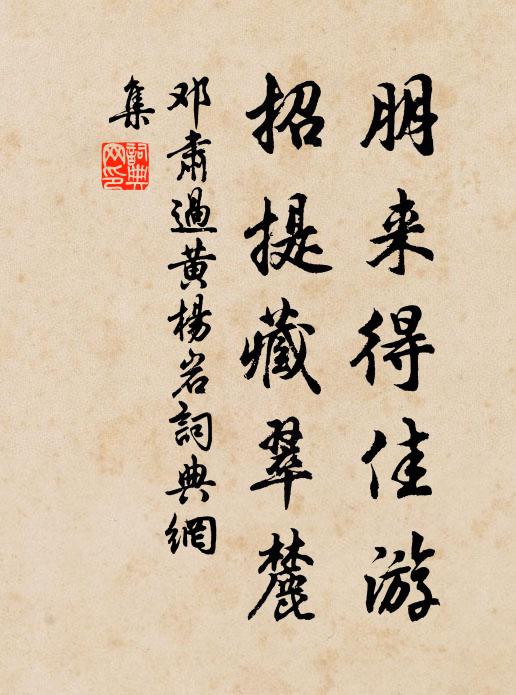 朋来得佳游
招提藏翠麓
邓肃過黄楊岩詞典網
集
詞典网印